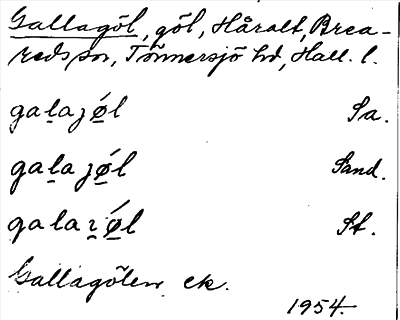 Gallagöl, göl, Håralt, Brea-
reds sn, Tönnersjö hd, Hall. l.
galajǿl Sa.
galajǿl Sand.
galaɪǿl St.
Gallagölen ek.
1954.